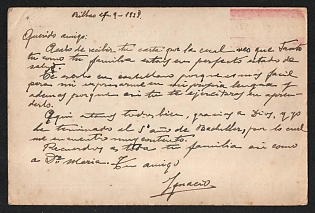 Bilbao 17-9-1928.
Querido amigo:
Acabo de recibir tu carta por la cual veo que tanto
tu como tu familia estais en perfecto estado de
salud.
Te escribo en castellano porque es muy facil
para mi expresarme en mi propia lengua y
ademas porque asi tu te ejercitas en apren-
derlo.
Aqui estamos todos bien, gracias a Dios, y yo
he terminado el 5º año de Bachiller, por lo cual
me encuentro muy contento.
Recuerdos a toda tu familia asi como
a Dª Maria. Tu amigo
Ignacio